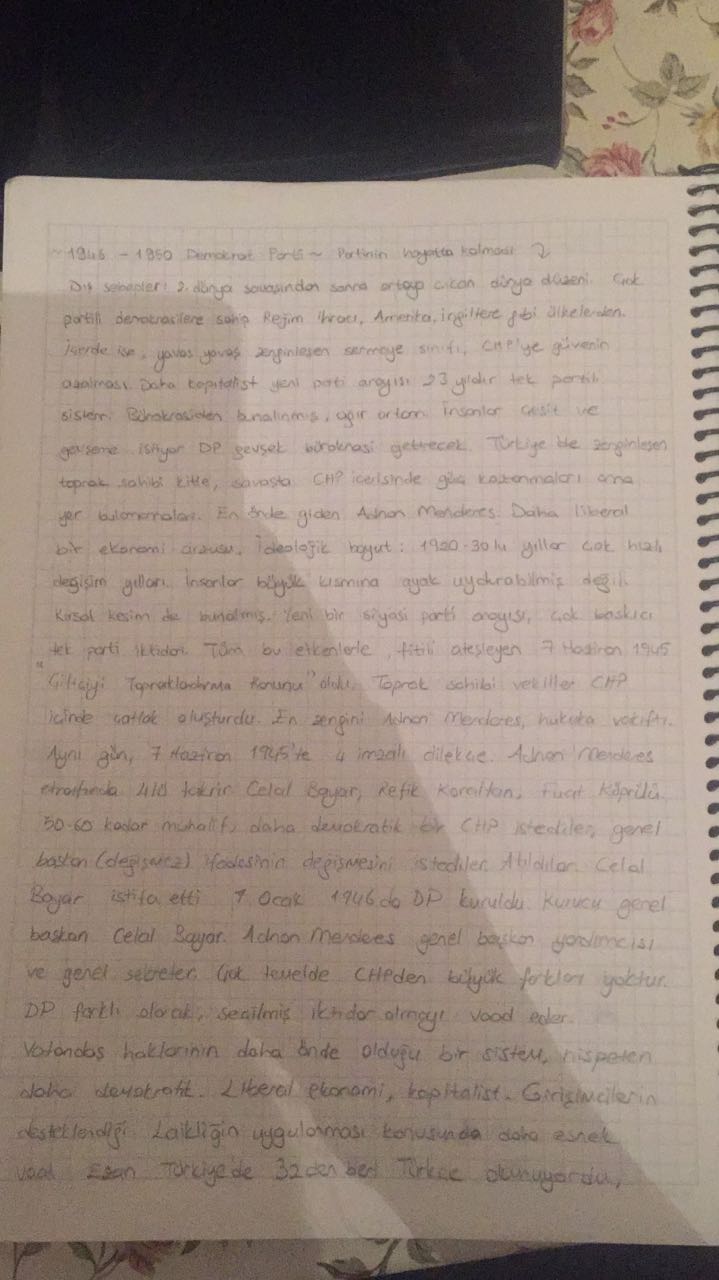 ~ 1946 - 1950 Demokrat Parti ~ Partinin hayatta kalması
Dış sebepler: 2. dünya savaşından sonra ortaya çıkan dünya düzeni. Çok
partili demokrasilere sahip Rejim ihracı, Amerika, ingiltere gibi ülkelerden.
İçerde ise, yavaş yavaş zenginleşen sermaye sınıfı, CHP'ye güvenin
azalması. Daha kapitalist yeni parti arayışı 23 yıldır tek partili
sistem. Bürokrasiden bunalınmış, ağır ortam. İnsanlar çeşit ve
gevşeme istiyor DP gevşek bürokrasi getirecek. Türkiye'de zenginleşen
toprak sahibi kitle, savaşta CHP içerisinde güç kazanmaları ama
yer bulamamaları. En önde giden Adnan Menderes. Daha liberal
bir ekonomi arzusu. İdeolojik boyut: 1920-30lu yıllar çok hızlı
değişim yılları. İnsanlar büyük kısmına ayak uydurabilmiş değil.
Kırsal kesim de bunalmış. Yeni bir siyasi parti arayışı, çok baskıcı
tek parti iktidarı. Tüm bu etkenlerle, fitili ateşleyen 7 Haziran 1945
"Çiftçiyi Topraklandırma Kanunu" oldu. Toprak sahibi vekiller CHP
içinde çatlak oluşturdu. En zengini Adnan Menderes, hukuka vakıftı.
Aynı gün, 7 Haziran 1945'te 4 imzalı dilekçe. Adnan Menderes
etrafında 4lü takrir Celal Bayar, Refik Koraltan, Fuat Köprülü.
50-60 kadar muhalif, daha demokratik bir CHP istediler, genel
başkan (değişmez) ifadesinin değişmesini istediler. Atıldılar. Celal
Bayar istifa etti 7 Ocak 1946da DP kuruldu. Kurucu genel
başkan Celal Bayar. Adnan Menderes genel başkan yardımcısı
ve genel sekreter. Çok temelde CHPden büyük farkları yoktur.
DP farklı olarak, seçilmiş iktidar olmayı vaad eder.
Vatandaş haklarının daha önde olduğu bir sistem, nispeten
daha demokratik. Liberal ekonomi, kapitalist. Girişimcilerin
desteklendiği. Laikliğin uygulanması konusunda daha esnek
vaad Ezan Türkiye'de 32den beri Türkçe okunuyordu,